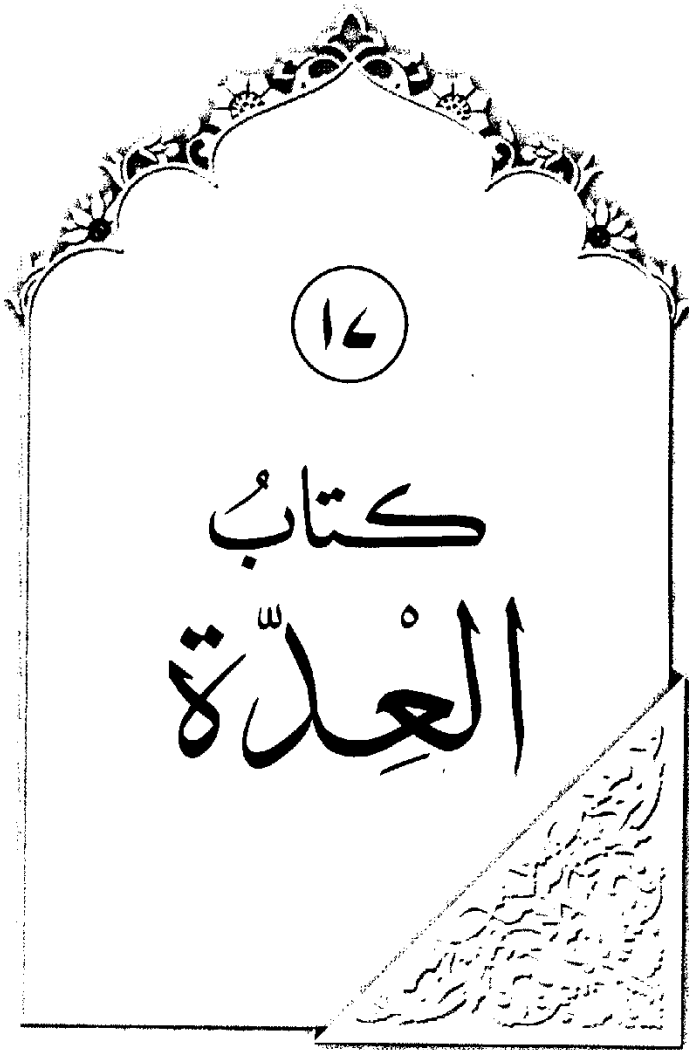 ۱۷
كتابُ
الْعِدّة